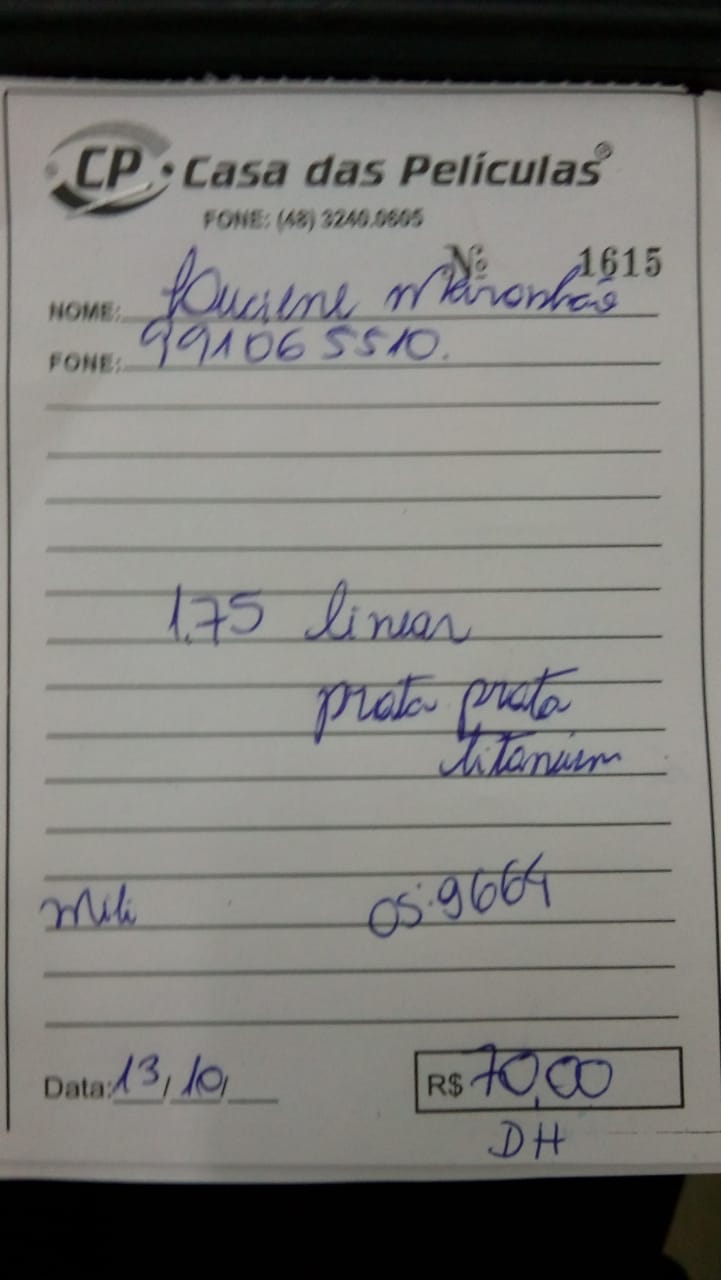 CP • Casa das Películas®
FONE: (48) 3240.0605
Nº 1615
NOME: Luciene Maranhão
FONE: 991065510.
1.75 linear
prata prata
titanium
Mili OS:9664
Data: 13/10/
R$ 70,00
DH